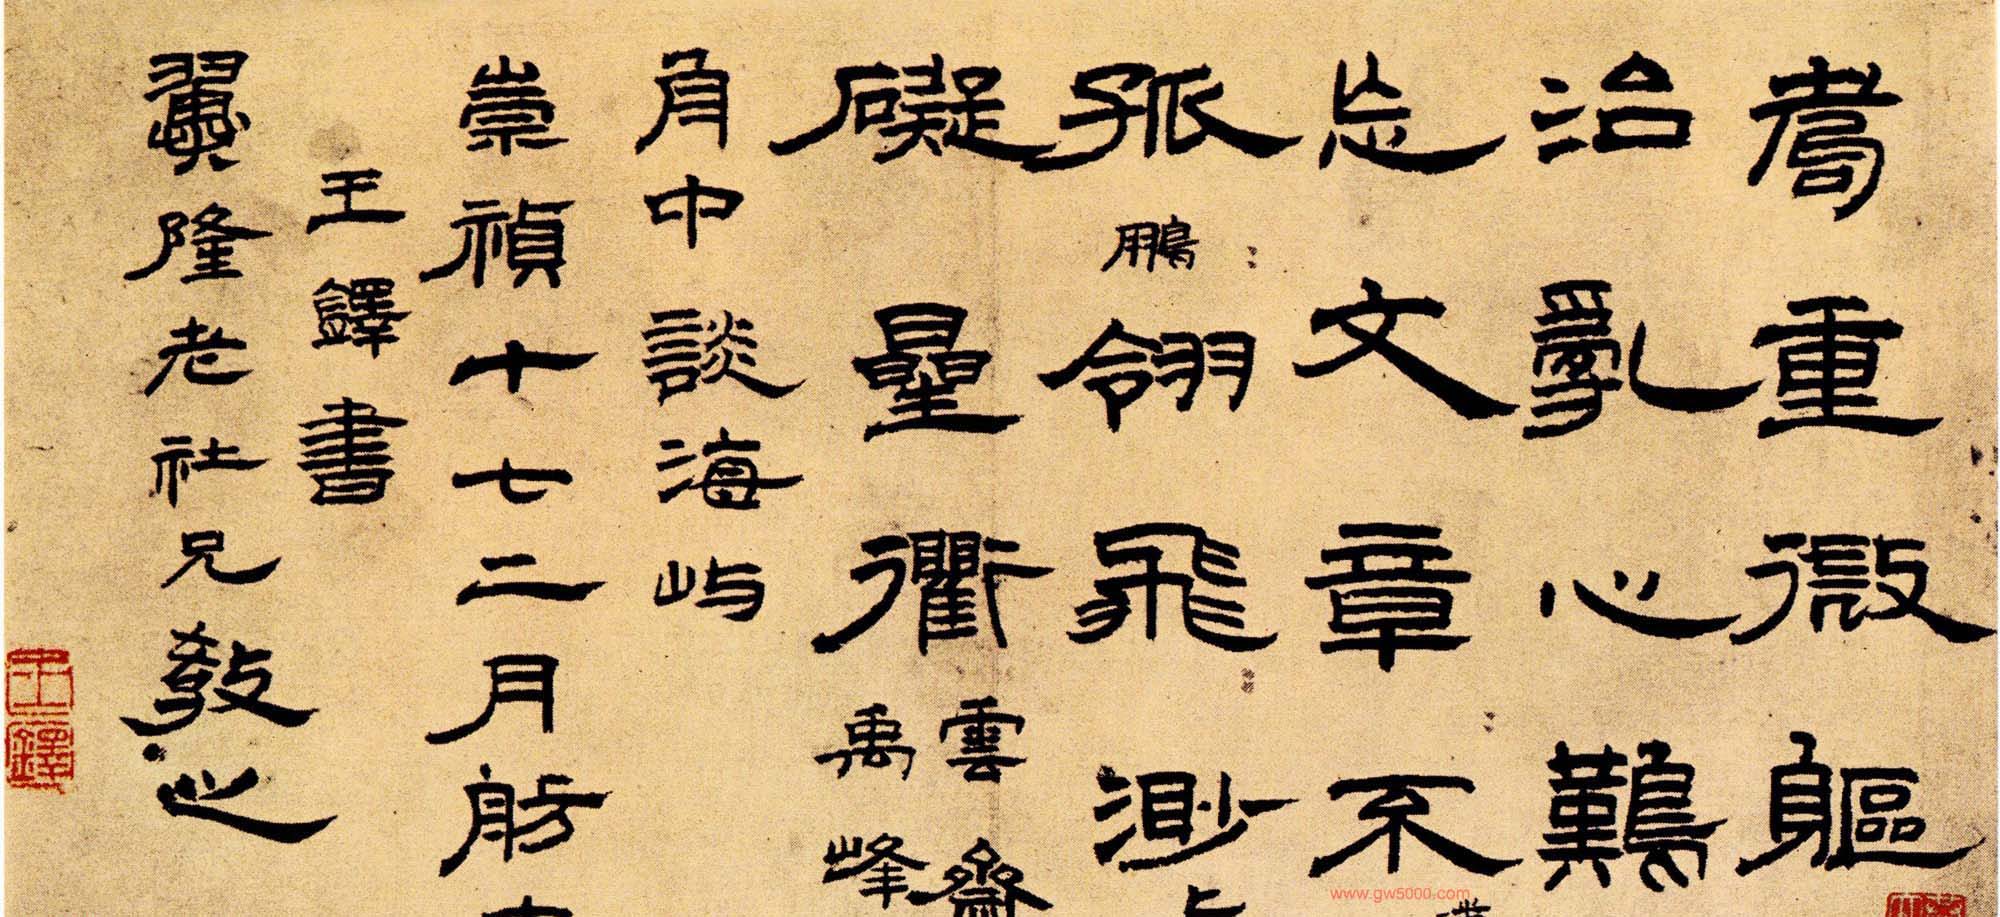 耆重微軀
治亂心難
忘文章不
孤鵬翎飛渺
礙量衢雲齋
禹峰
角中談海屿
崇禎十七二月舫
王鐸書
翼隆老社兄教之
王鐸
www.gw5000.com